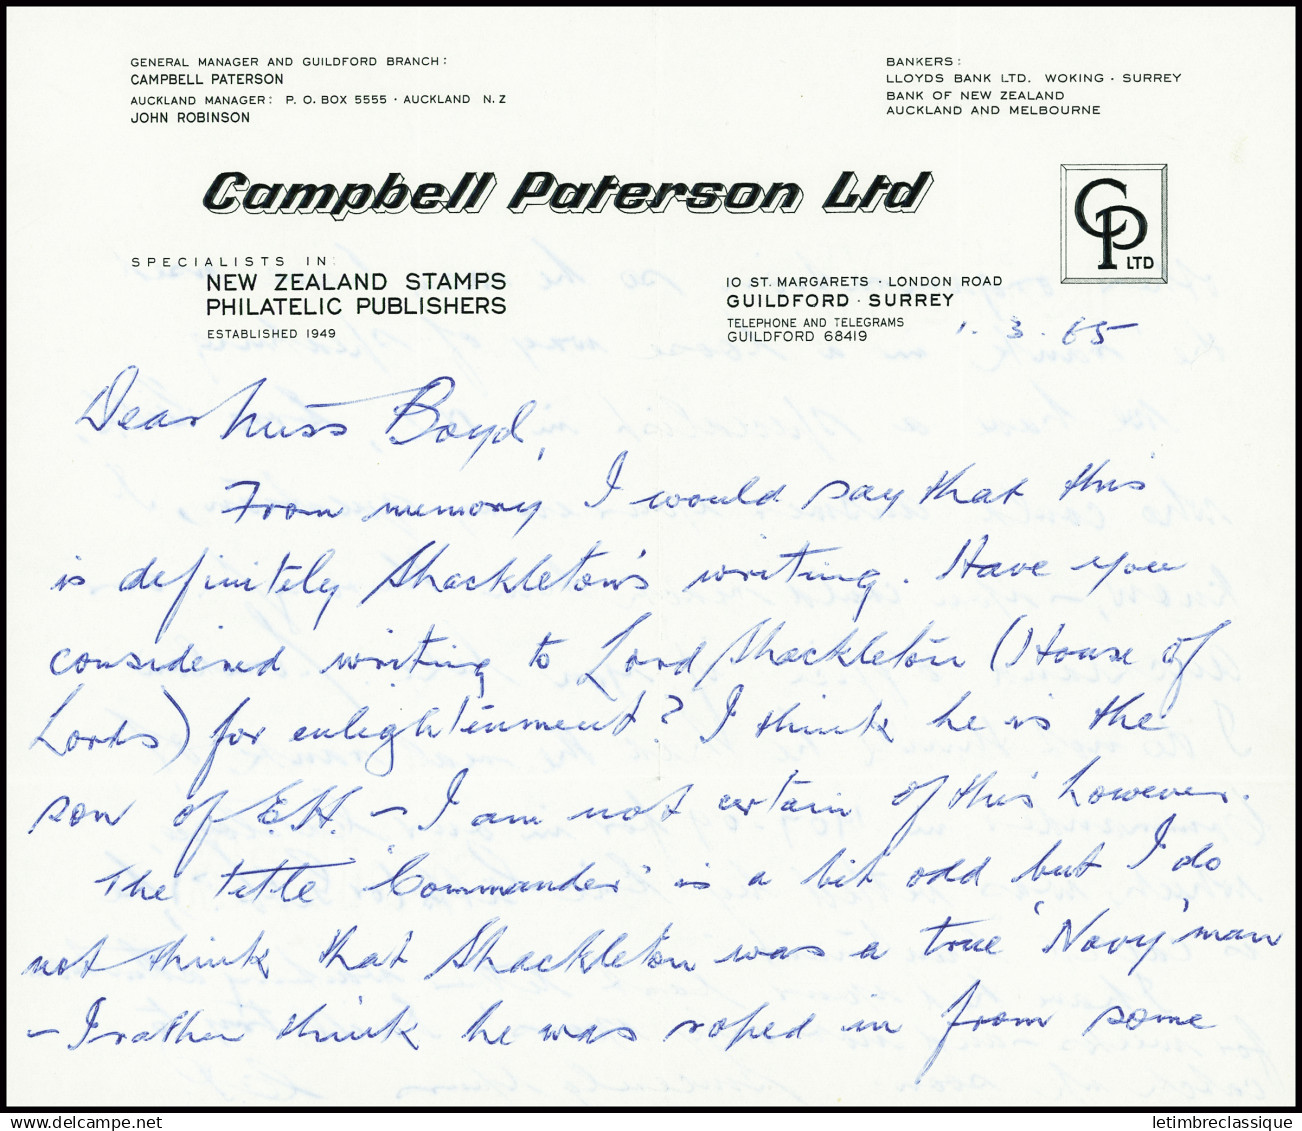 GENERAL MANAGER AND GUILDFORD BRANCH:
CAMPBELL PATERSON
AUCKLAND MANAGER: P. O. BOX 5555 · AUCKLAND N. Z
JOHN ROBINSON
BANKERS:
LLOYDS BANK LTD. WOKING · SURREY
BANK OF NEW ZEALAND
AUCKLAND AND MELBOURNE
Campbell Paterson Ltd
CP LTD
SPECIALISTS IN:
NEW ZEALAND STAMPS
PHILATELIC PUBLISHERS
ESTABLISHED 1949
10 ST. MARGARETS · LONDON ROAD
GUILDFORD · SURREY
TELEPHONE AND TELEGRAMS
GUILDFORD 68419
1. 3. 65
Dear Miss Boyd,
From memory I would say that this
is definitely Shackleton's writing. Have you
considered writing to Lord Shackleton (House of
Lords) for enlightenment? I think he is the
son of E.H. – I am not certain of this however.
The title 'Commander' is a bit odd but I do
not think that Shackleton was a true 'Navy' man
– I rather think he was roped in from some
letimbreclassique